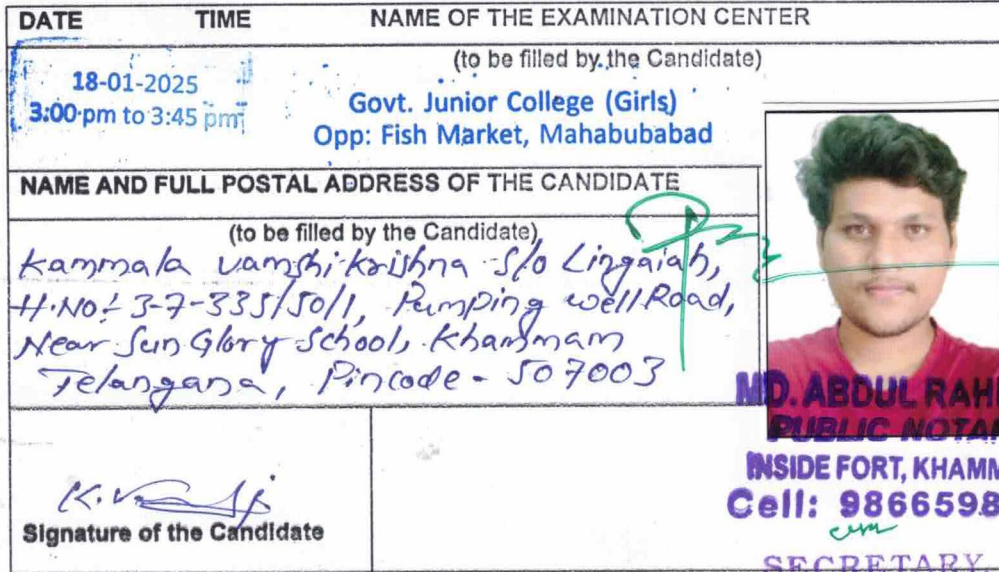 DATE TIME NAME OF THE EXAMINATION CENTER
(to be filled by the Candidate)
18-01-2025
3:00 pm to 3:45 pm
Govt. Junior College (Girls)
Opp: Fish Market, Mahabubabad
NAME AND FULL POSTAL ADDRESS OF THE CANDIDATE
(to be filled by the Candidate)
Kammala Vamshi Krishna S/o Lingaiah,
H.No: 3-7-335/50/1, Pumping well Road,
Near Sun Glory School, Khammam
Telangana, Pincode - 507003
MD. ABDUL RAH
PUBLIC NOTA
INSIDE FORT, KHAMM
Cell: 9866598
SECRETARY
Signature of the Candidate